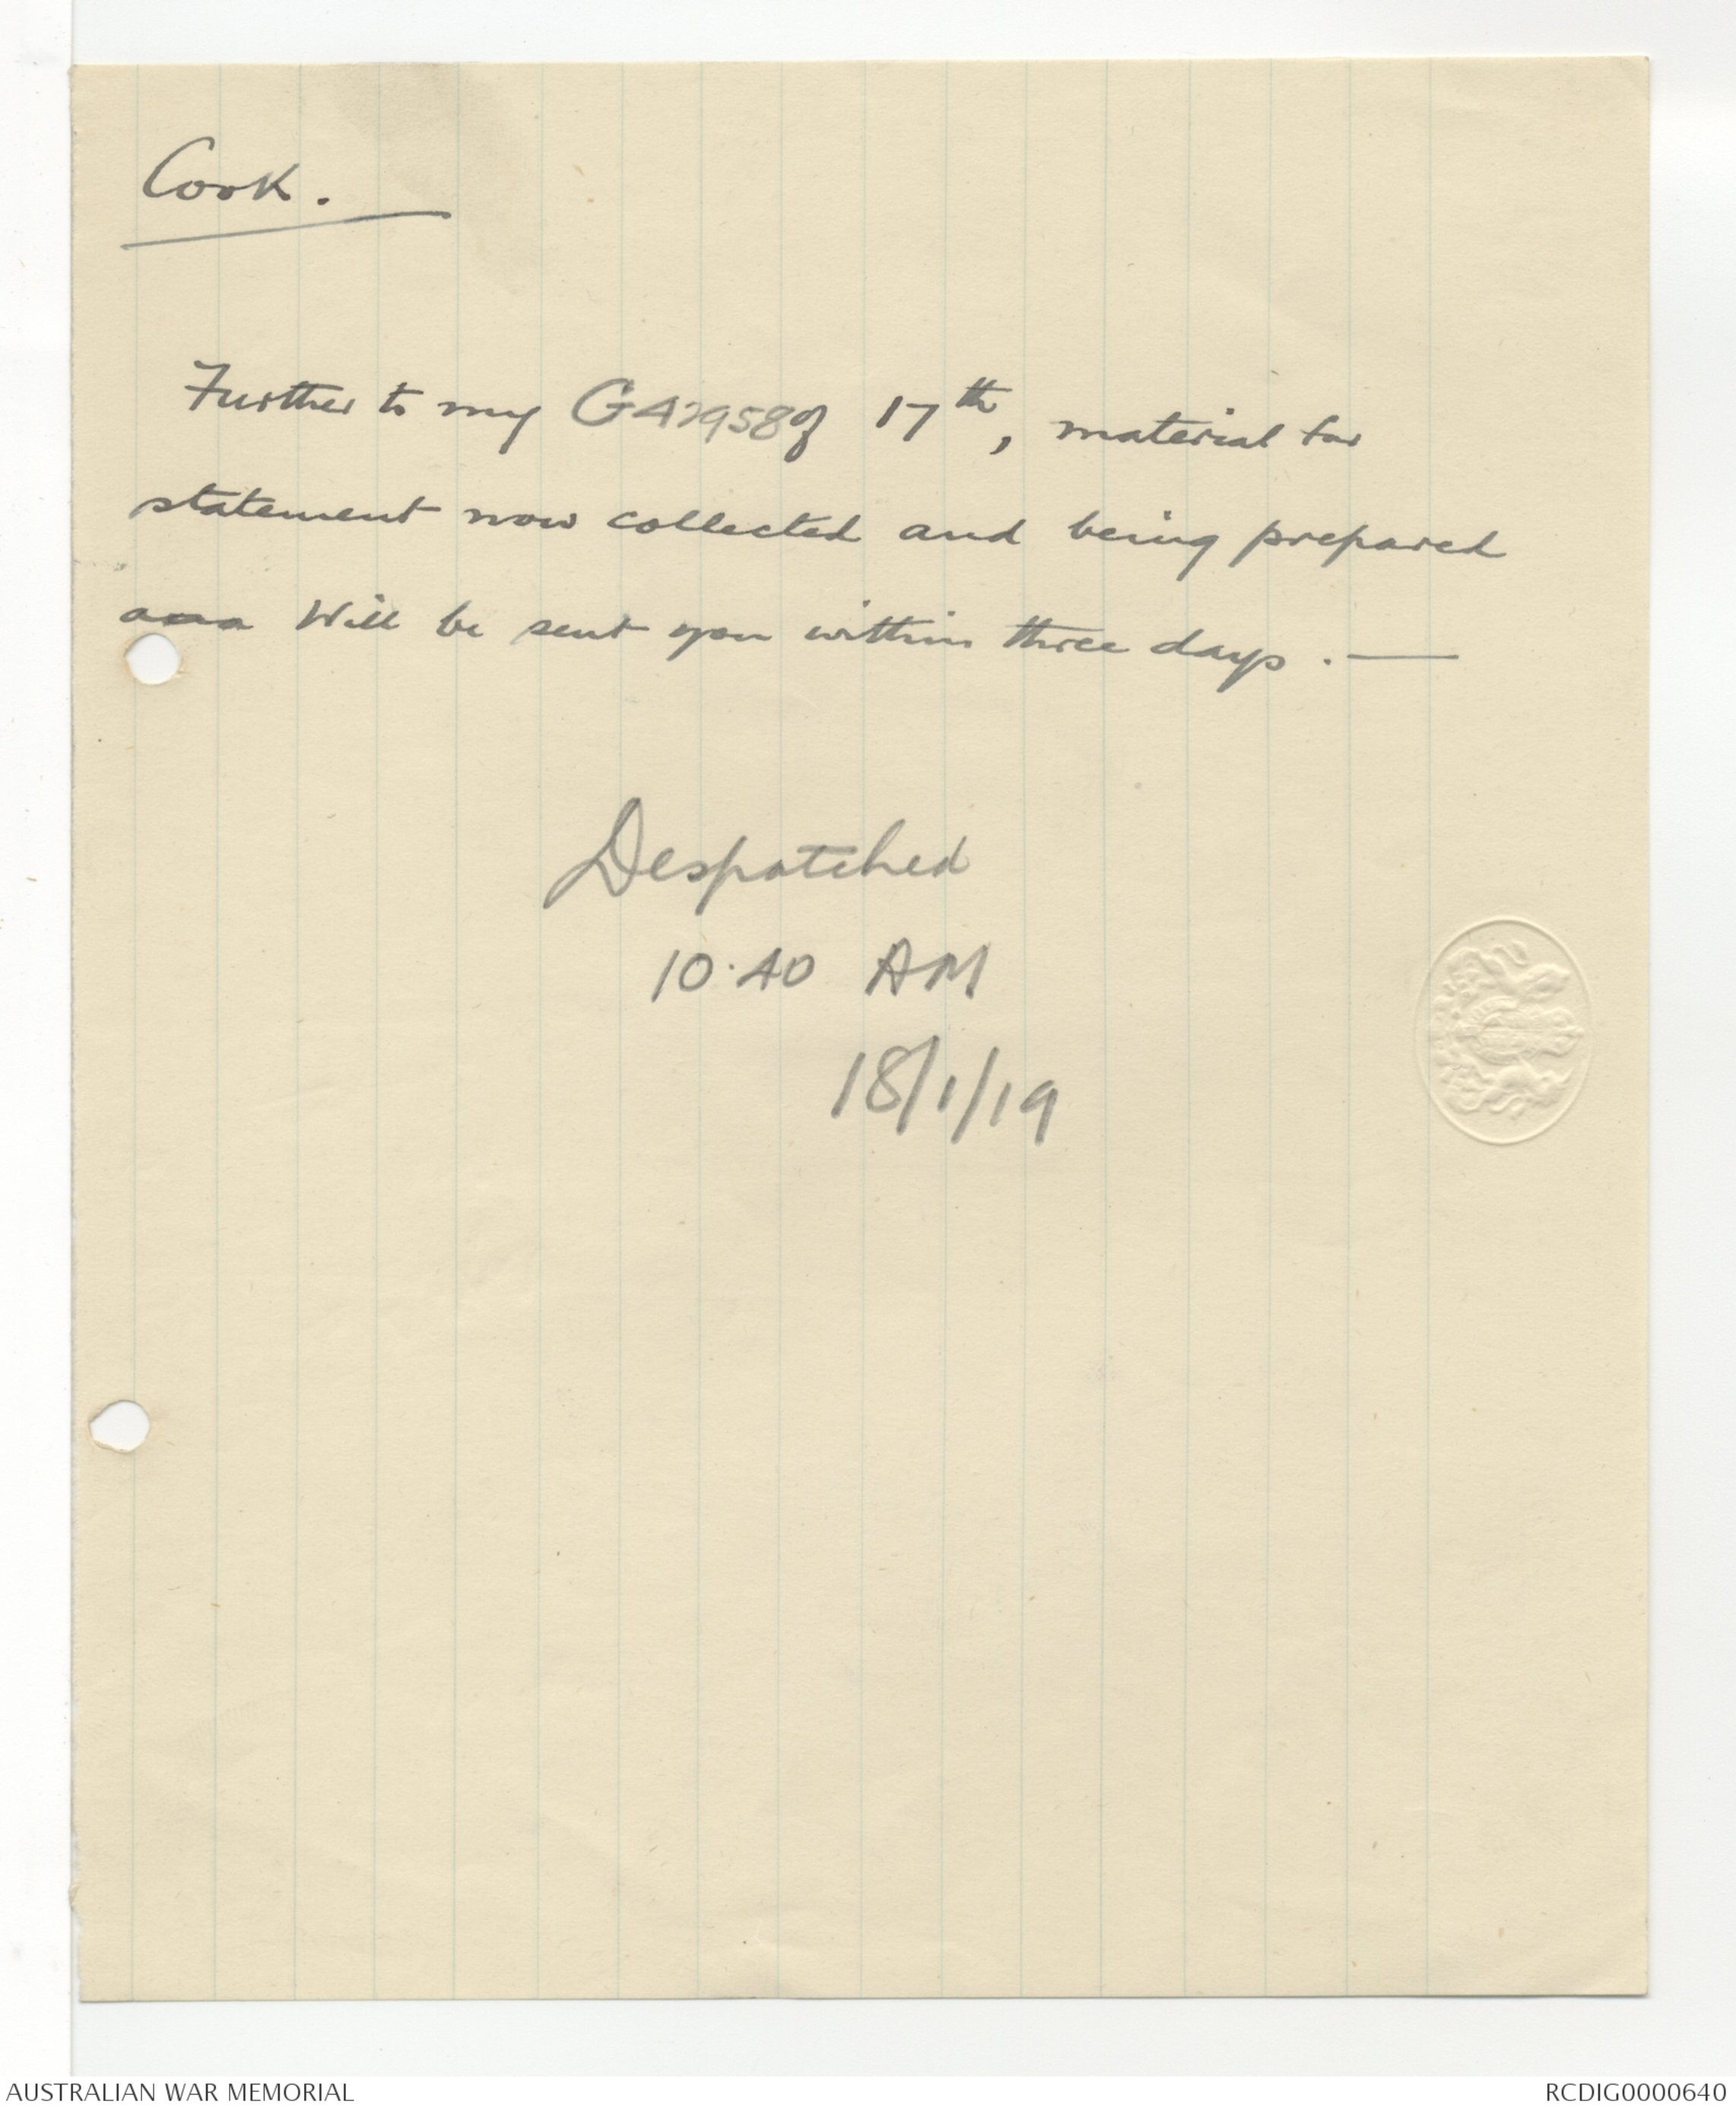 Cook.
Further to my G42958 of 17th, material for
statement now collected and being prepared
Will be sent you within three days. —
Despatched
10.40 AM
18/1/19
AUSTRALIAN WAR MEMORIAL
RCDIG0000640